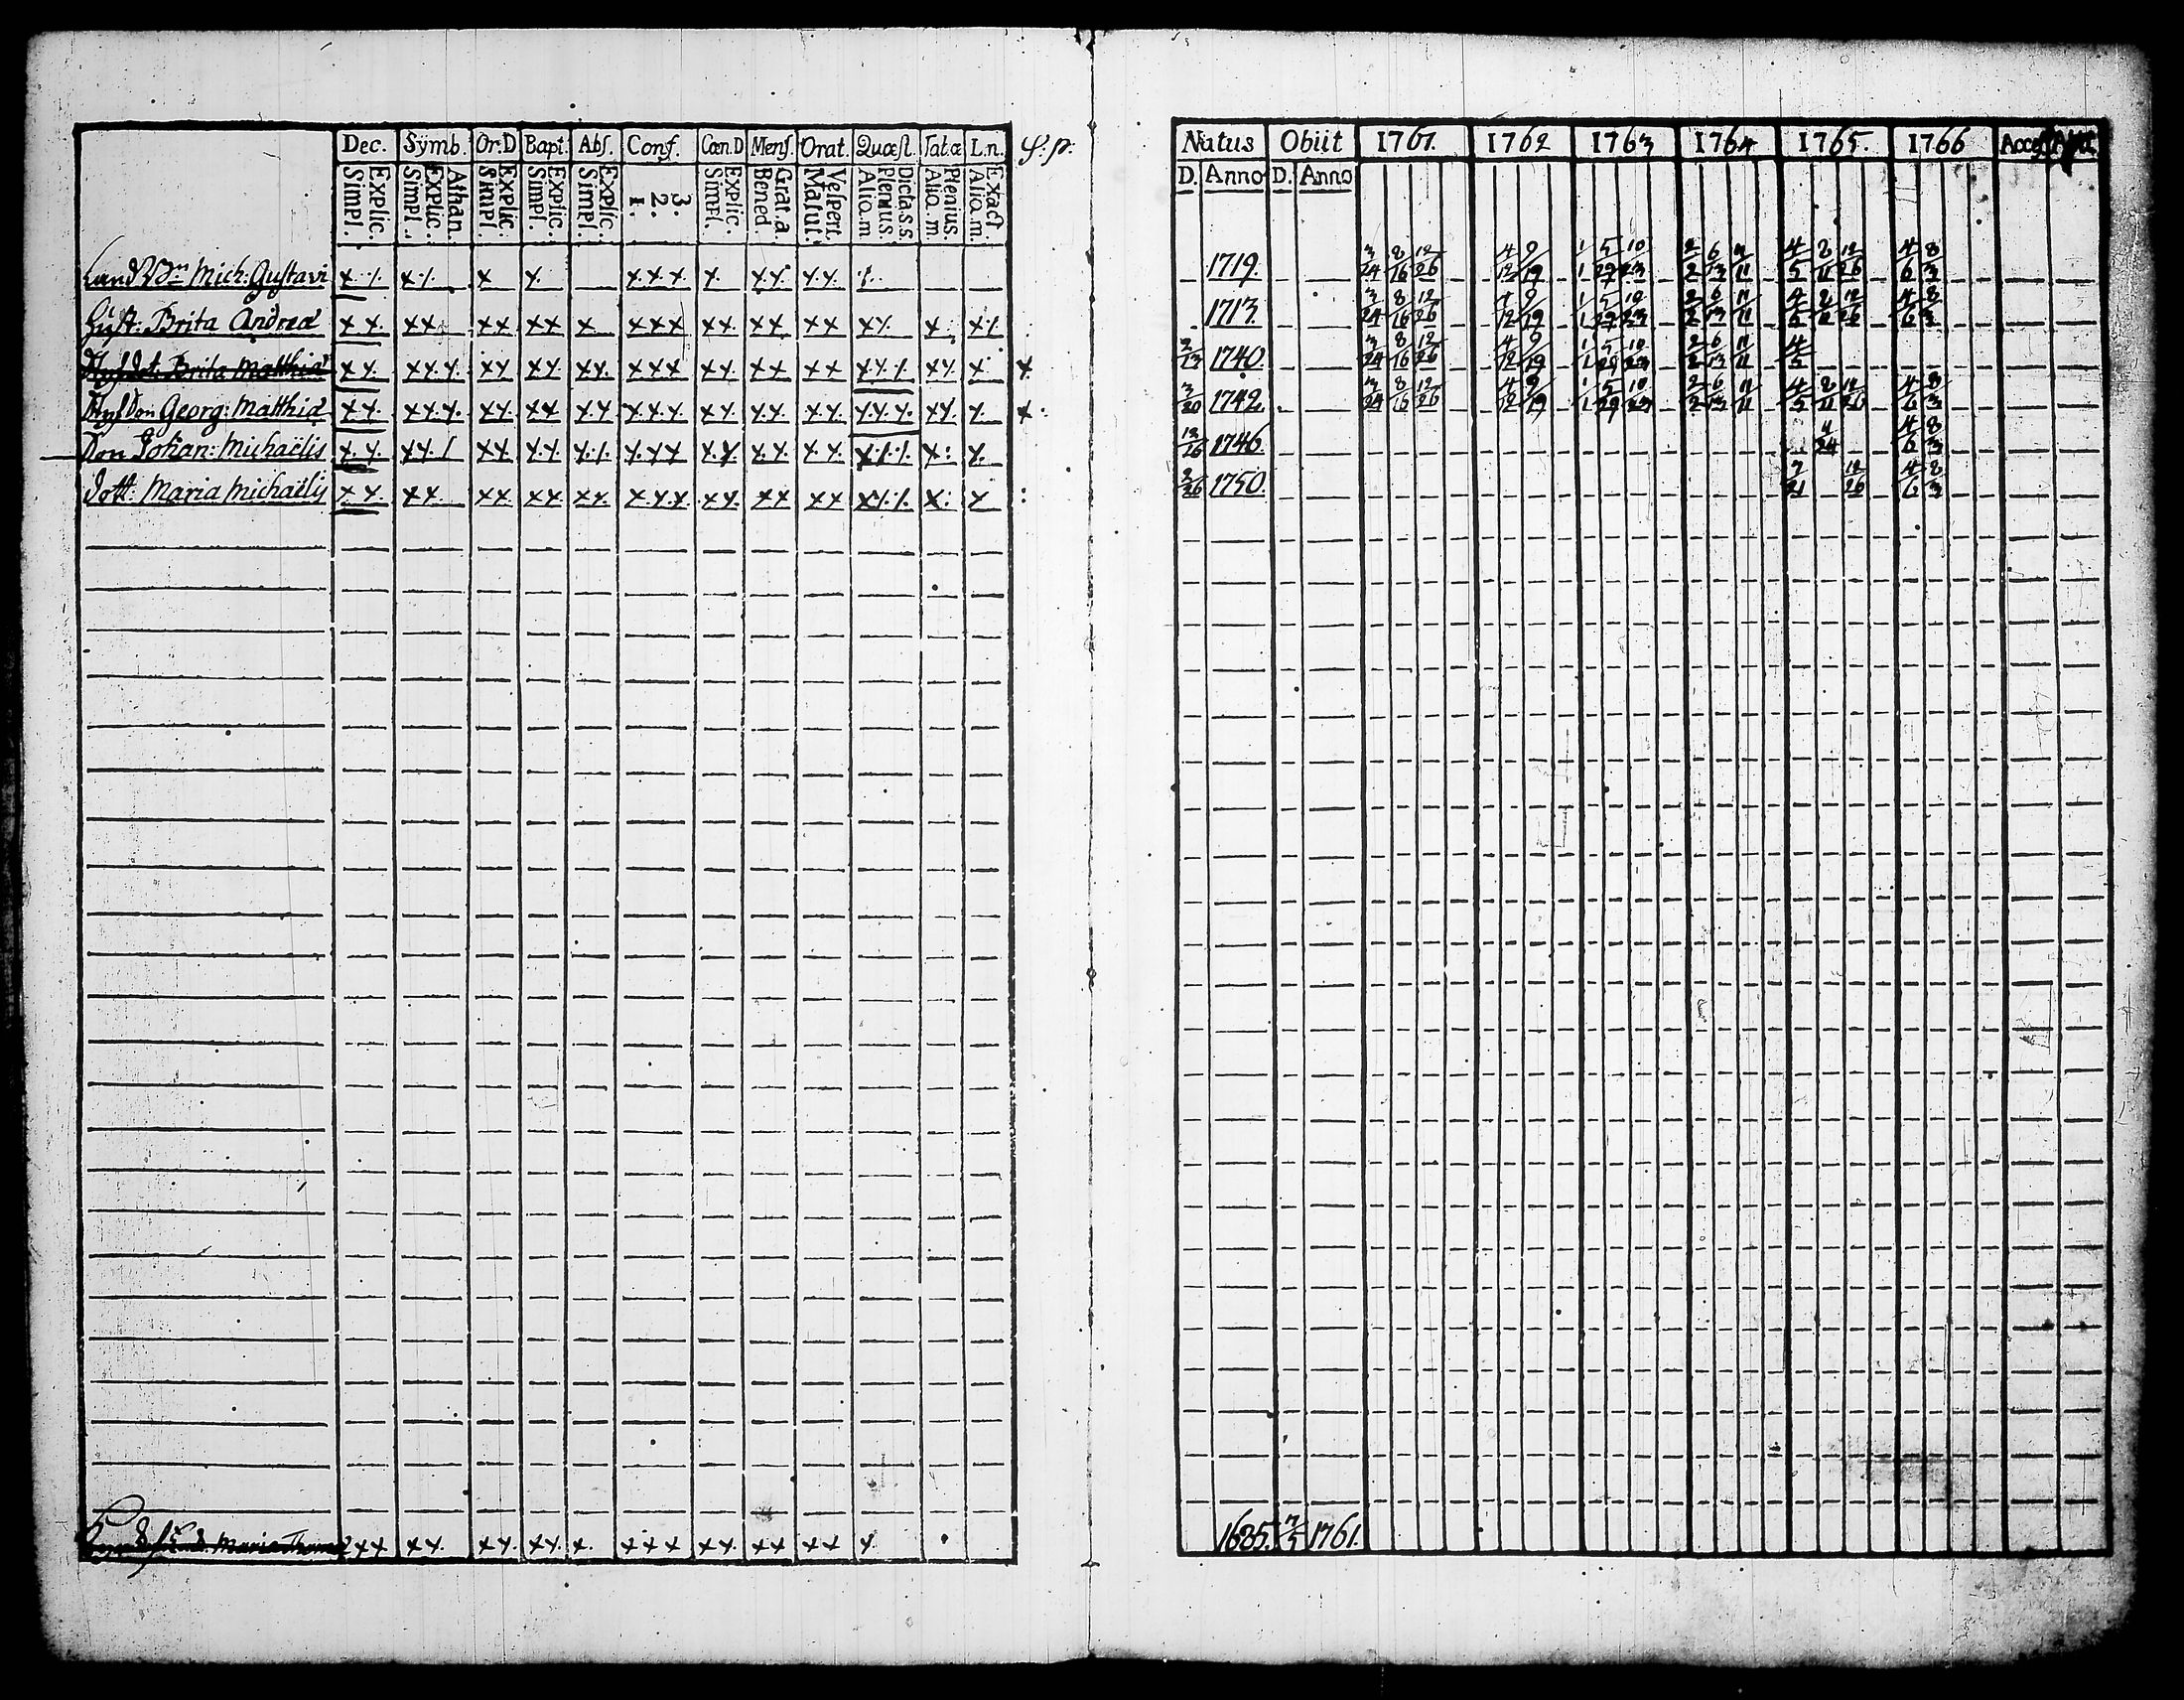 Dec. Sÿmb. Or.D Bapt. Abs. Conf. Cœn.D Mens. Orat. Quæst. Tat.æ L.n.
Explic. Simpl. Athan. Explic. Simpl. Explic. Simpl. Explic. Simpl. Explic. Simpl. 3. 2. 1. Explic. Simpl. Grat.a Bened. Vespert. Matut. Dicta.s.s. Plenius. Alio.m Plenius. Alio.m. Exact. Alio.m.
Mich: Gustavi x x x x x x x x x x x x x x x
Brita Andreæ x x x x x x x x x x x x x x x x x x x x x x x x
Brita Matthiæ x x x x x x x x x x x x x x x x x x x x x x x x x x x
Georg: Matthiæ x x x x x x x x x x x x x x x x x x x x x x x x x x x
Son Johan: Michaëlis x x x x x x x x x x x x x x x x x x x x x x x x x
dott: Maria Michaëlis x x x x x x x x x x x x x x x x x x x x x x x x x
Maria x x x x x x x x x x x x x x x x x x x
Natus Obiit 1761. 1762 1763 1764 1765. 1766
D. Anno D. Anno
1719. 3/24 8/16 12/26 4/12 9/19 1/1 5/29 10/23 2/2 6/13 11/11 4/5 8/11 12/26 4/6 8/3
1713. 3/24 8/16 12/26 4/12 9/19 1/1 5/29 10/23 2/2 6/13 11/11 4/5 8/11 12/26 4/6 8/3
2/13 1740. 3/24 8/16 12/26 4/12 9/19 1/1 5/29 10/23 2/2 6/13 11/11 4/5
3/20 1742. 3/24 8/16 12/26 4/12 9/19 1/1 5/29 10/23 2/2 6/13 11/11 4/5 8/11 12/26 4/6 8/3
12/26 1746. 4/6 8/3
2/26 1750. 7/21 12/26 4/6 8/3
1685. 7/5 1761.